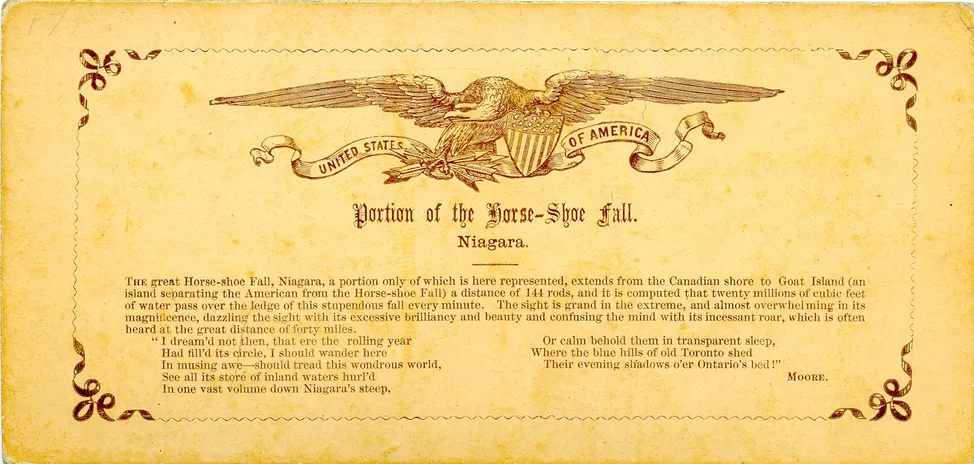 UNITED STATES
OF AMERICA
Portion of the Horse-Shoe Fall.
Niagara.
THE great Horse-shoe Fall, Niagara, a portion only of which is here represented, extends from the Canadian shore to Goat Island (an
island separating the American from the Horse-shoe Fall) a distance of 144 rods, and it is computed that twenty millions of cubic feet
of water pass over the ledge of this stupendous fall every minute. The sight is grand in the extreme, and almost overwhelming in its
magnificence, dazzling the sight with its excessive brilliancy and beauty and confusing the mind with its incessant roar, which is often
heard at the great distance of forty miles.
"I dream'd not then, that ere the rolling year
Had fill'd its circle, I should wander here
In musing awe—should tread this wondrous world,
See all its store of inland waters hurl'd
In one vast volume down Niagara's steep,
Or calm behold them in transparent sleep,
Where the blue hills of old Toronto shed
Their evening shadows o'er Ontario's bed!"
MOORE.